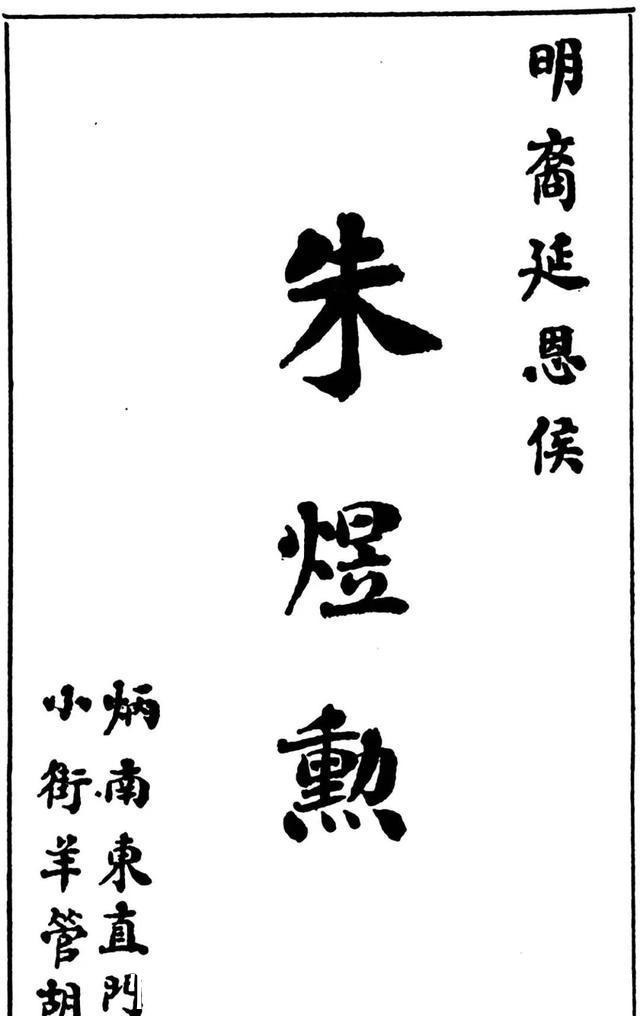 明裔延恩侯
朱煜勳
炳南東直門
小街羊管胡